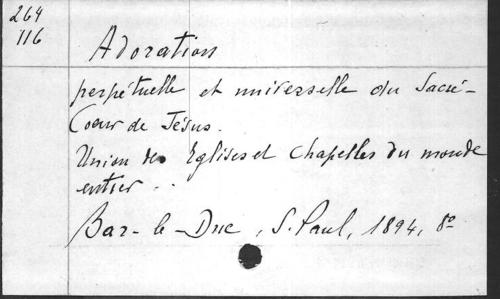 264
116
Adoration
perpétuelle et universelle du Sacré-
Cœur de Jésus.
Union des Eglises et Chapelles du monde
entier..
Bar-le-Duc, S. Paul, 1894, 8º